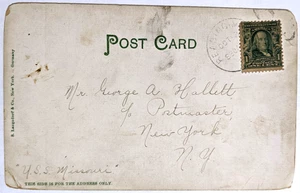 POST CARD
Mr. George A. Hallett
c/o Postmaster
New York
N. Y
"U.S.S. Missouri"
THIS SIDE IS FOR THE ADDRESS ONLY.
S. Langsdorf & Co., New York. Germany